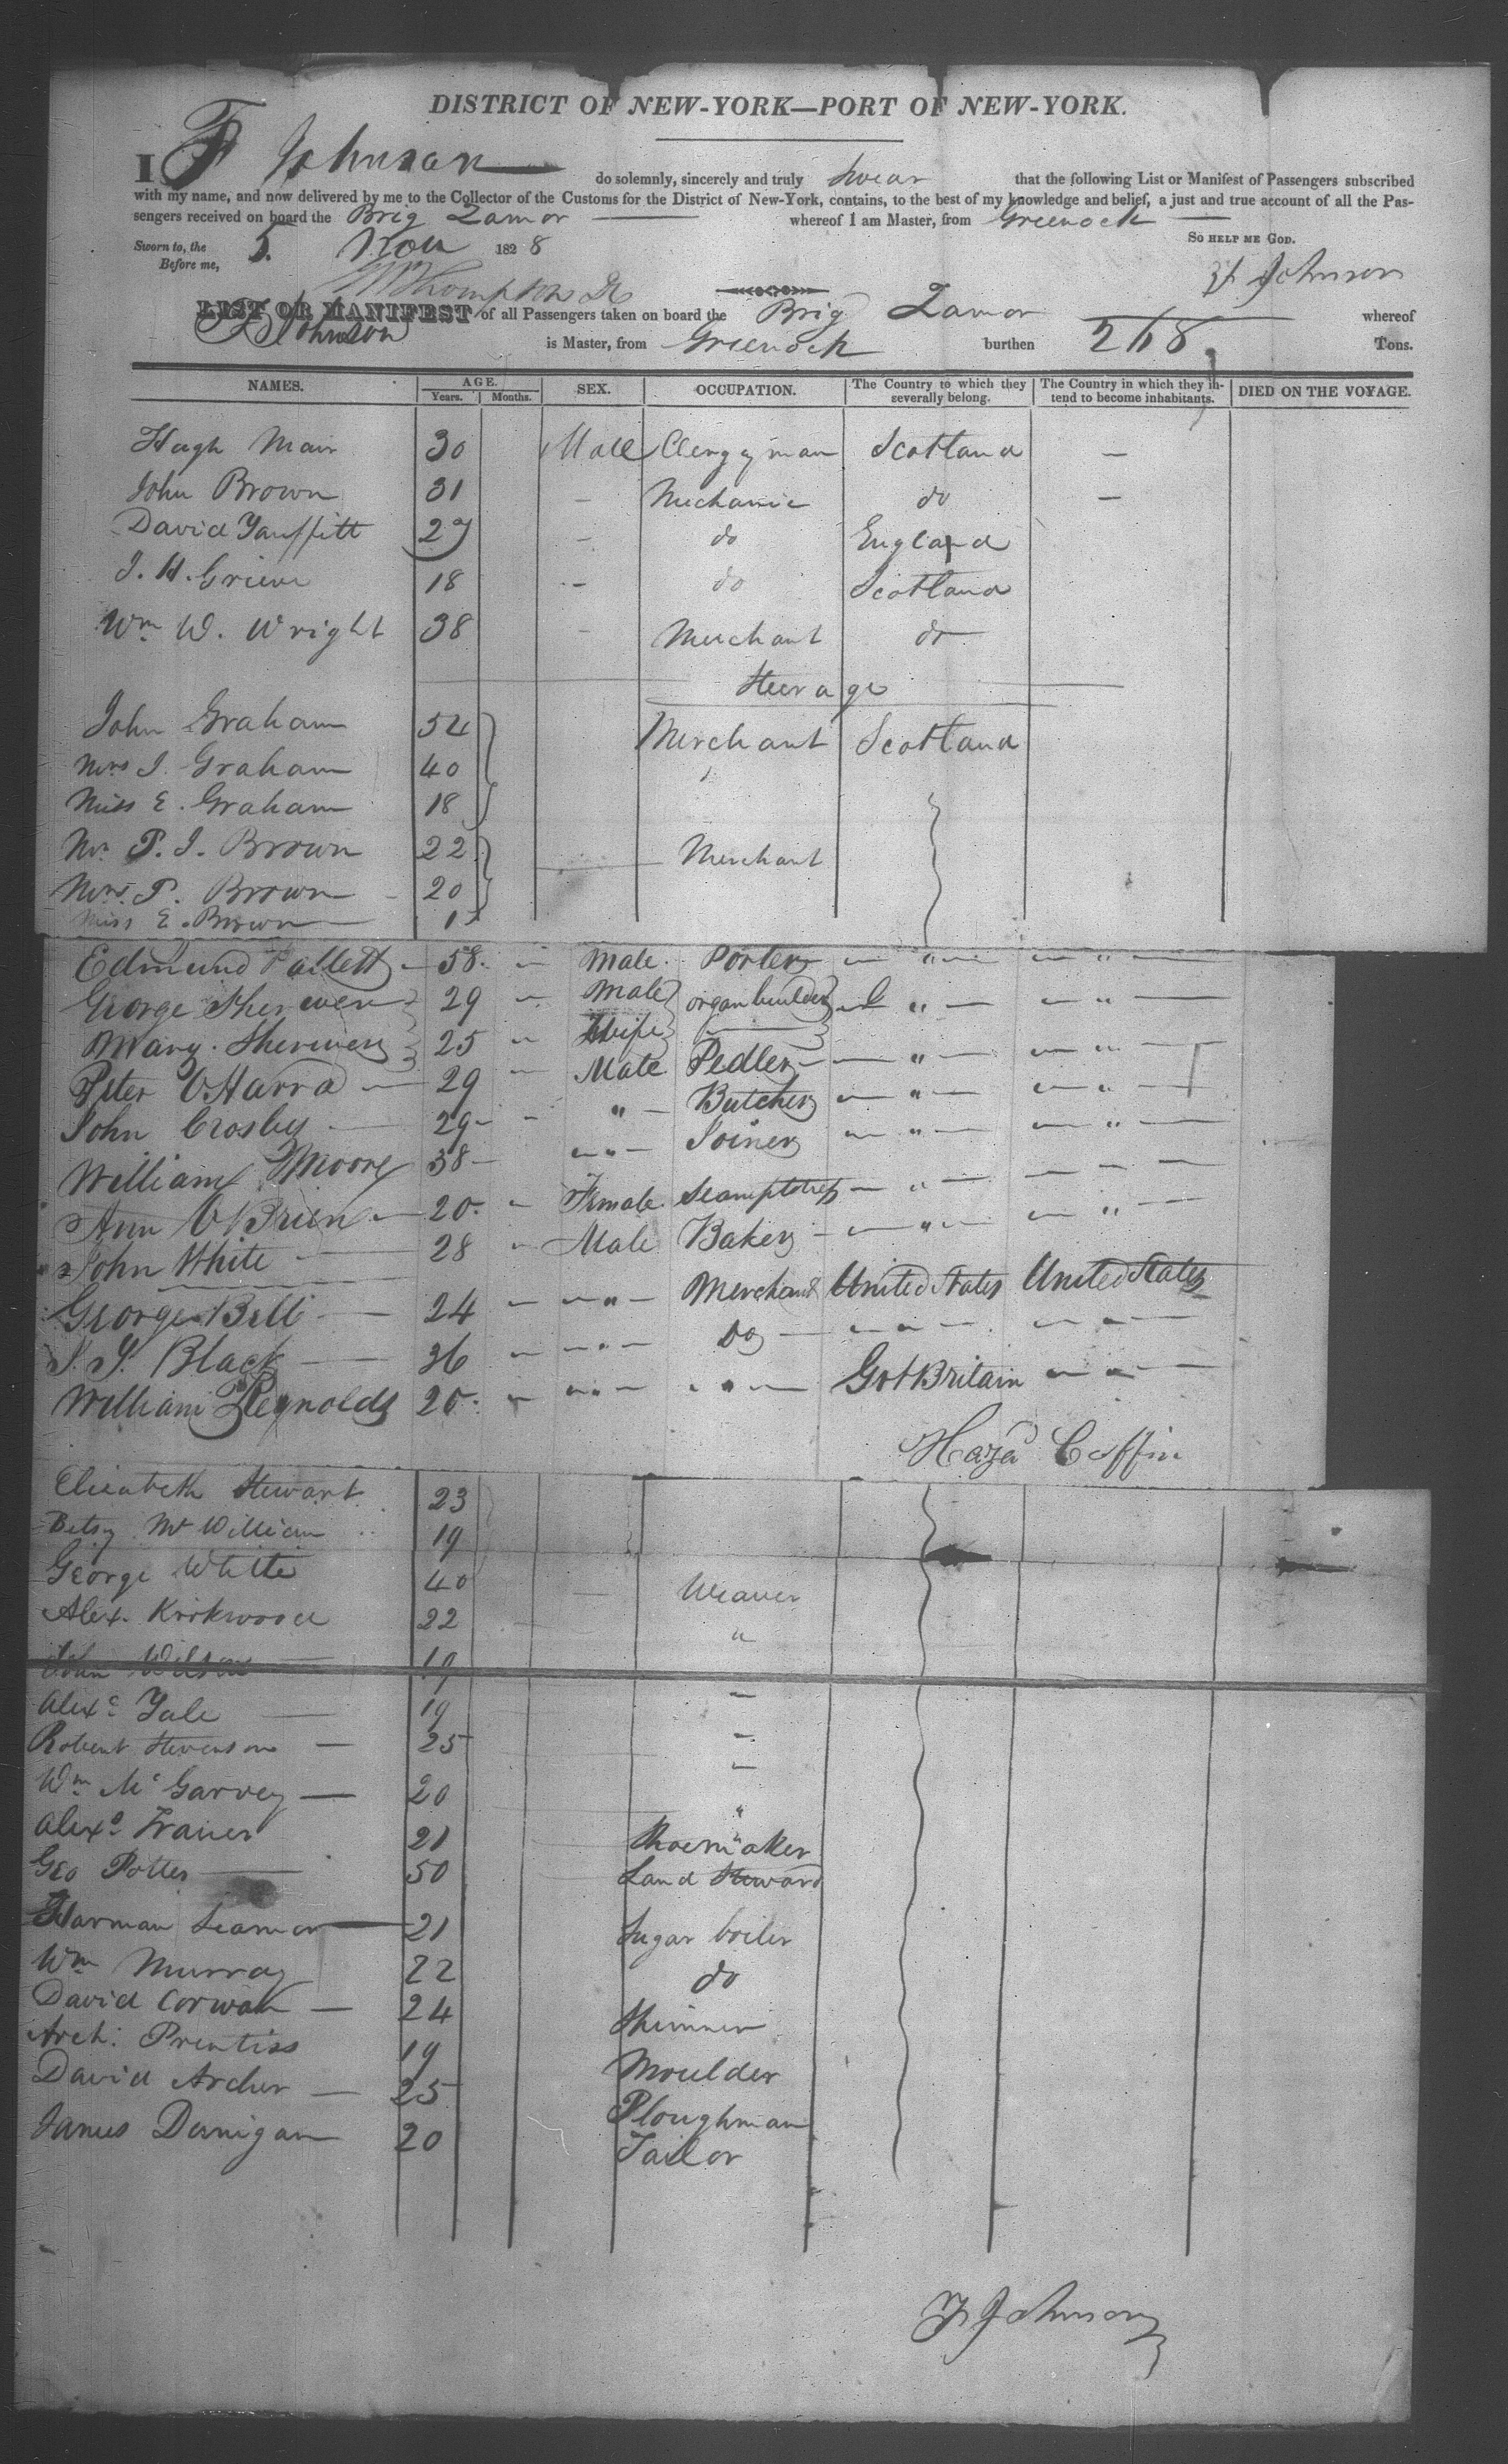 DISTRICT OF NEW-YORK—PORT OF NEW-YORK.
I F Johnson do solemnly, sincerely and truly swear that the following List or Manifest of Passengers subscribed
with my name, and now delivered by me to the Collector of the Customs for the District of New-York, contains, to the best of my knowledge and belief, a just and true account of all the Pas-
sengers received on board the Brig Zamor whereof I am Master, from Greenock
Sworn to, the 5. Nov 1828 SO HELP ME GOD.
Before me,
Thompson F Johnson
LIST OR MANIFEST of all Passengers taken on board the Brig Zamor whereof
F Johnson is Master, from Greenock burthen 268 Tons.
NAMES. AGE. SEX. OCCUPATION. The Country to which they severally belong. The Country in which they intend to become inhabitants. DIED ON THE VOYAGE.
Years. Months.
Hugh Mair 30 Male Clergyman Scotland —
John Brown 31 – Mechanic do —
David 27 – do England
J. H. Grieve 18 – do Scotland
Wm W. Wright 38 – Merchant do
Steerage
John Graham 54 Merchant Scotland
Mrs J. Graham 40
Miss E. Graham 18
Mr P. J. Brown 22 Merchant
Mrs. P. Brown 20
Miss E. Brown 1
Edmund Pallett 58. " Male. Porter — " — — " —
George Sherwen 29 " Male organ builder " — — " —
Mary. Sherwen 25 " Wife
Peter O'Harra 29 " Male Pedler — " — — " —
John Crosby 29 - " — Butcher — " — — " —
William Moore 38 — — " — Joiner — " — — " —
Ann O'Brien 20. " Female Seamptstress — " — — — —
John White 28 " Male Baker — " — — " —
George Bell 24 — — " — Merchant United States United States
J. S. Black 36 — — " — Do — " — — " —
William Reynolds 25. — — " — — " — Gt Britain — " —
Hazd Coffin
Elizabeth Stewart 23
Betsy Mc William 19
George White 40 — Weaver
Alex. Kirkwood 22 "
John Wilson 19
Alexr Yule 19 –
Robert Stevenson 25 –
Wm McGarvey 20 –
Alexr Fraser 21 Shoemaker
Geo Potter 50 Land Steward
Harman Seamor 21 Sugar boiler
Wm Murray 22 do
David Corwan 24 Skinner
Arch: Prentiss 19 Moulder
David Archer 25 Ploughman
James Dunigan 20 Tailor
F Johnson